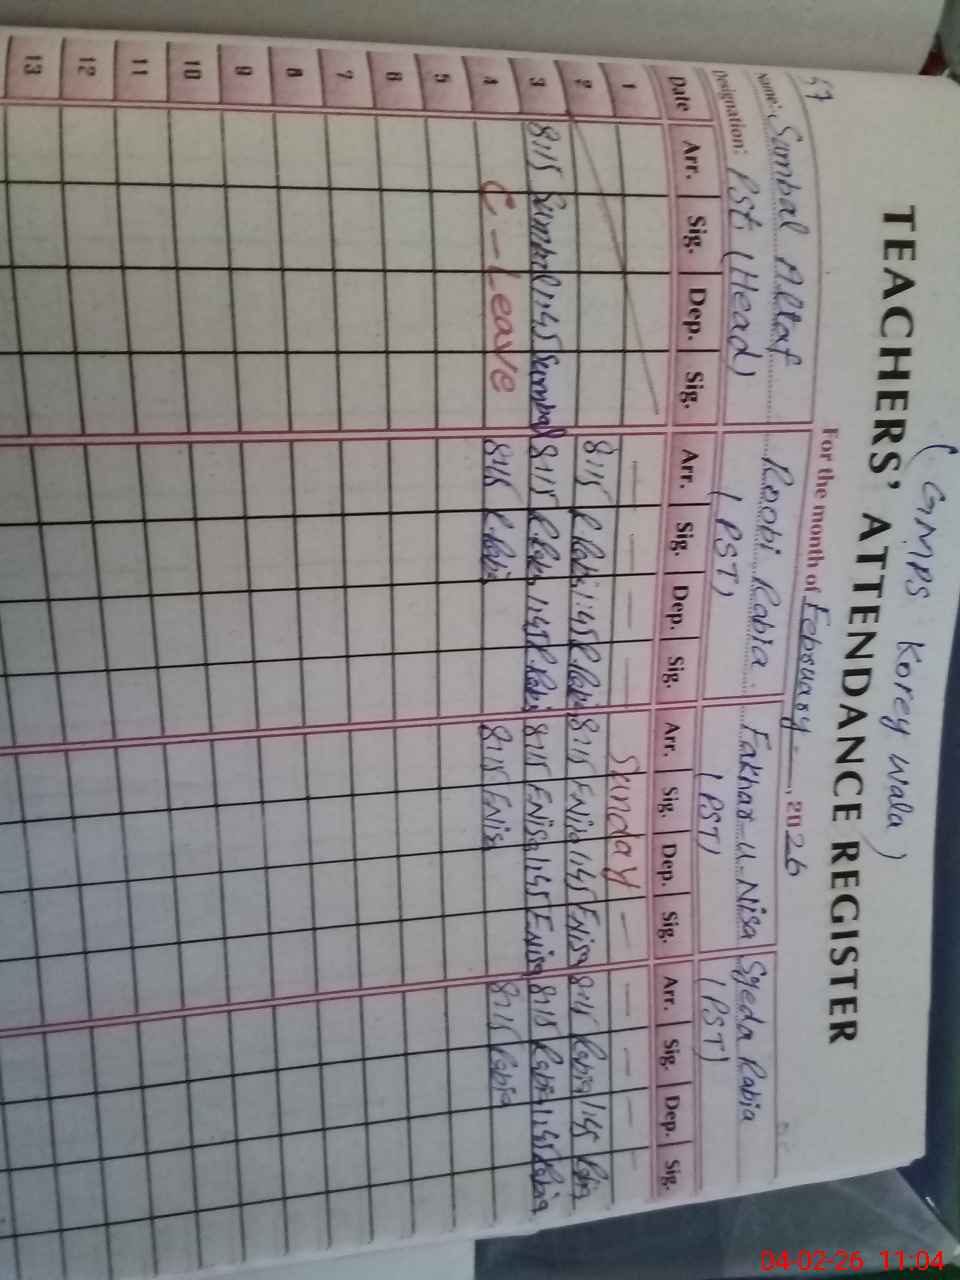 ( GMPS Korey wala )
TEACHERS' ATTENDANCE REGISTER
For the month of February - , 2026
57
Name: Sumbal Altaf Roobi Rabia. Fakhar-u-Nisa Syeda Rabia
Designation: PSt, (Head) (PST) (PST) (PST)
Date Arr. Sig. Dep. Sig. Arr. Sig. Dep. Sig. Arr. Sig. Dep. Sig. Arr. Sig. Dep. Sig.
1 — — — — Sunday — — — —
2 8:15 R Rabia 1:45 R Rabi 8:15 FNisa 1:45 FNisa 8:15 Rabia 1:45 Rabia
3 8:15 Sumbal 1:45 Sumbal 8:15 R Rabi 1:45 R Rabi 8:15 FNisa 1:45 FNisa 8:15 Rabia 1:45 Rabia
4 C-Leave 8:15 R Rabia 8:15 FNisa 8:15 Rabia
5
6
7
8
9
10
11
12
13
04-02-26 11:04